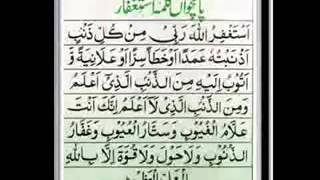 پانچواں کلمہ استغفار
اَسْتَغْفِرُ اللهَ رَبِّیْ مِنْ كُلِّ ذَنْۢبٍ
اَذْنَبْتُهٗ عَمَدًا اَوْ خَطَأً سِرًّا اَوْ عَلَانِیَةً وَّ
اَتُوْبُ اِلَیْهِ مِنَ الذَّنْۢبِ الَّذِیْٓ اَعْلَمُ
وَمِنَ الذَّنْۢبِ الَّذِیْ لَآ اَعْلَمُ اِنَّكَ اَنْتَ
عَلَّامُ الْغُیُوْبِ وَسَتَّارُ الْعُیُوْبِ وَغَفَّارُ
الذُّنُوْبِ وَلَا حَوْلَ وَلَا قُوَّةَ اِلَّا بِاللهِ
الْعَلِیِّ الْعَظِیْمِ